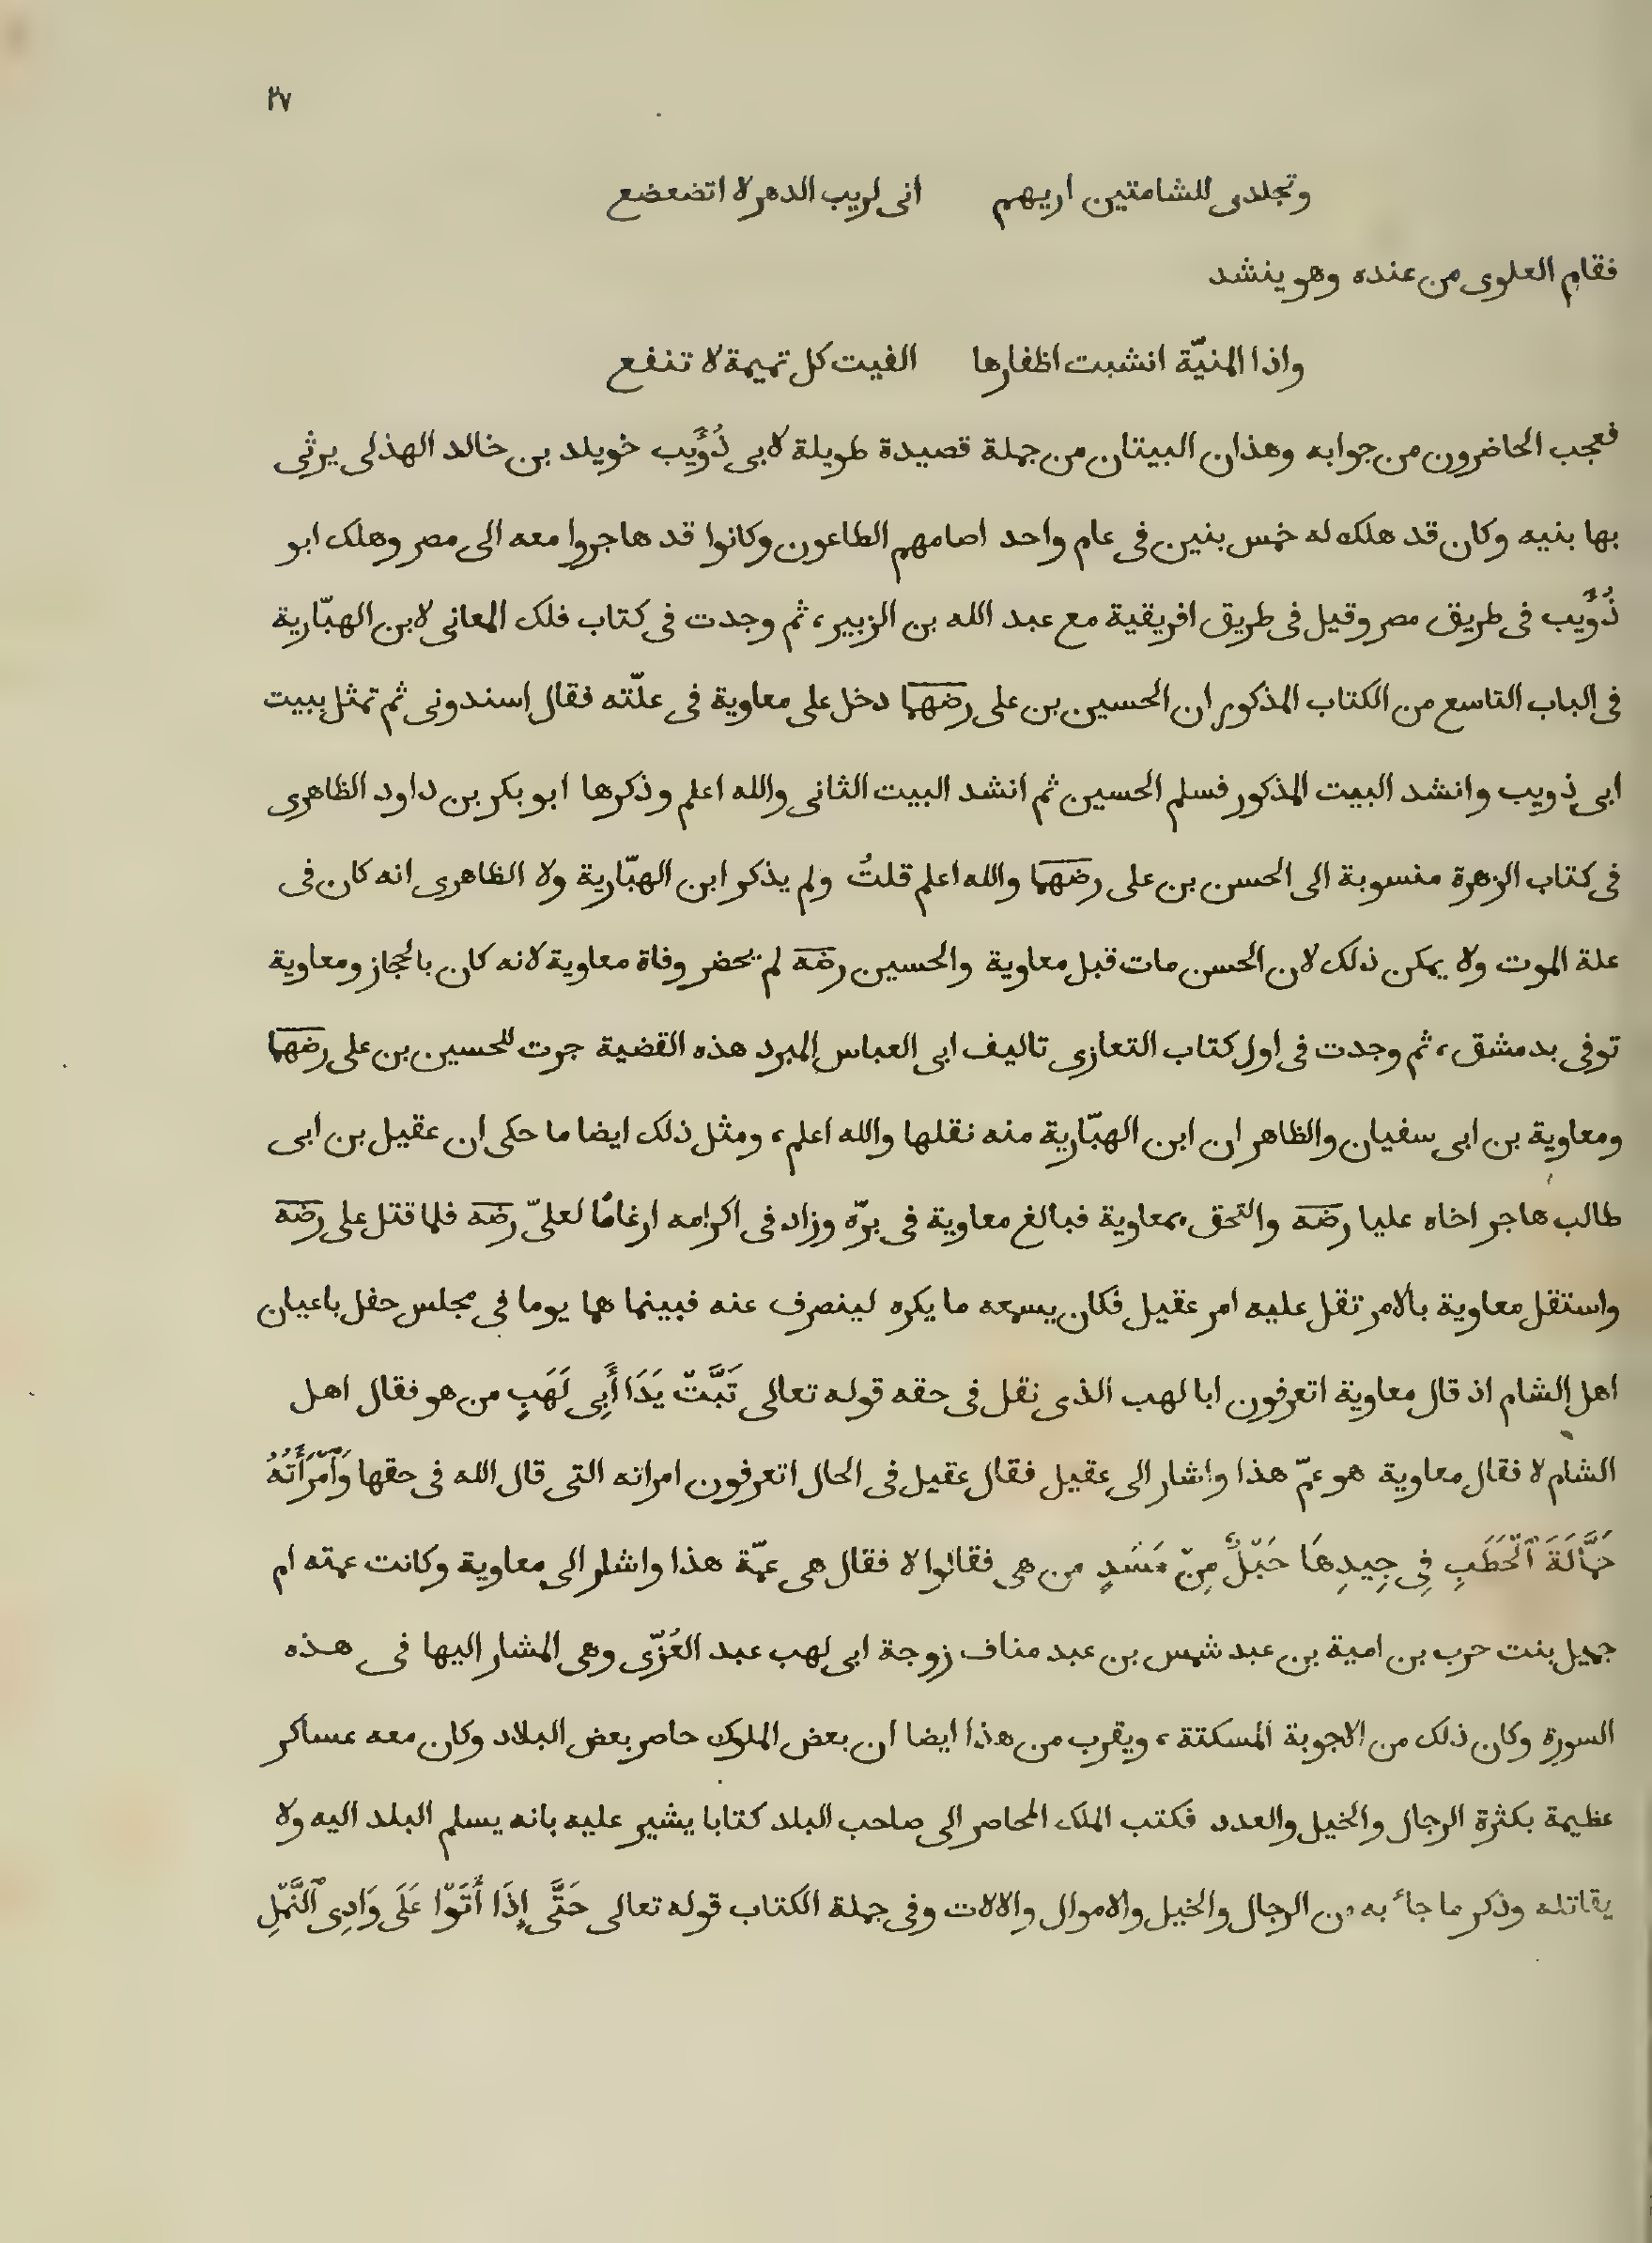 ٢٧
وتجلدى للشامتين اريهم انى لريب الدهر لا اتضعضع
فقام العلوى من عنده وهو ينشد
واذا المنيّة انشبت اظفارها الفيت كل تميمة لا تنفع
فعجب الحاضرون من جوابه وهذان البيتان من جملة قصيدة طويلة لابى ذُؤَيب خويلد بن خالد الهذلى يرثى
بها بنيه وكان قد هلك له خمس بنين فى عام واحد اصابهم الطاعون وكانوا قد هاجروا معه الى مصر وهلك ابو
ذُؤَيب فى طريق مصر وقيل فى طريق افريقية مع عبد الله بن الزبير، ثم وجدت فى كتاب فلك المعانى لابن الهبّارية
فى الباب التاسع من الكتاب المذكور ان الحسين بن على رضهما دخل على معاوية فى علّته فقال اسندونى ثم تمثل ببيت
ابى ذويب وانشد البيت المذكور فسلم الحسين ثم انشد البيت الثانى والله اعلم وذكرها ابو بكر بن داود الظاهرى
فى كتاب الزهرة منسوبة الى الحسن بن على رضهما والله اعلم قلتُ ولم يذكر ابن الهبّارية ولا الظاهرى انه كان فى
علة الموت ولا يمكن ذلك لان الحسن مات قبل معاوية والحسين رضه لم يحضر وفاة معاوية لانه كان بالحجاز ومعاوية
توفى بدمشق، ثم وجدت فى اول كتاب التعازى تاليف ابى العباس المبرد هذه القضية جرت للحسين بن على رضهما
ومعاوية بن ابى سفيان والظاهر ان ابن الهبّارية منه نقلها والله اعلم، ومثل ذلك ايضا ما حكى ان عقيل بن ابى
طالب هاجر اخاه عليا رضه والتحق بمعاوية فبالغ معاوية فى برّه وزاد فى اكرامه ارغامًا لعلىّ رضه فلما قتل على رضه
واستقل معاوية بالامر ثقل عليه امر عقيل فكان يسمعه ما يكره لينصرف عنه فبينما هما يوما فى مجلس حفل باعيان
اهل الشام اذ قال معاوية اتعرفون ابا لهب الذى نقل فى حقه قوله تعالى تَبَّتْ يَدَا أَبِى لَهَبٍ من هو فقال اهل
الشام لا فقال معاوية هو عمّ هذا واشار الى عقيل فقال عقيل فى الحال اتعرفون امراته التى قال الله فى حقها وَٱمْرَأَتُهُ
حَمَّالَةَ ٱلْحَطَبِ فِى جِيدِهَا حَبْلٌ مِنْ مَسَدٍ من هى فقالوا لا فقال هى عمّة هذا واشار الى معاوية وكانت عمته ام
جميل بنت حرب بن امية بن عبد شمس بن عبد مناف زوجة ابى لهب عبد العُزّى وهى المشار اليها فى هذه
السورة وكان ذلك من الاجوبة المسكتة، ويقرب من هذا ايضا ان بعض الملوك حاصر بعض البلاد وكان معه عساكر
عظيمة بكثرة الرجال والخيل والعدد فكتب الملك المحاصر الى صاحب البلد كتابا يشير عليه بانه يسلم البلد اليه ولا
يقاتله وذكر ما جاء به من الرجال والخيل والاموال والالات وفى جملة الكتاب قوله تعالى حَتَّى إِذَا أَتَوْا عَلَى وَادِى ٱلنَّمْلِ